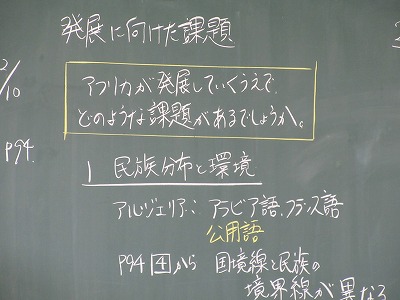 発展に向けた課題
2/10
P94.
アフリカが発展していくうえで、
どのような課題があるでしょうか。
1 民族分布と環境
アルジェリア: アラビア語、フランス語
公用語
P94 4 から 国境線と民族の
境界線が異なる